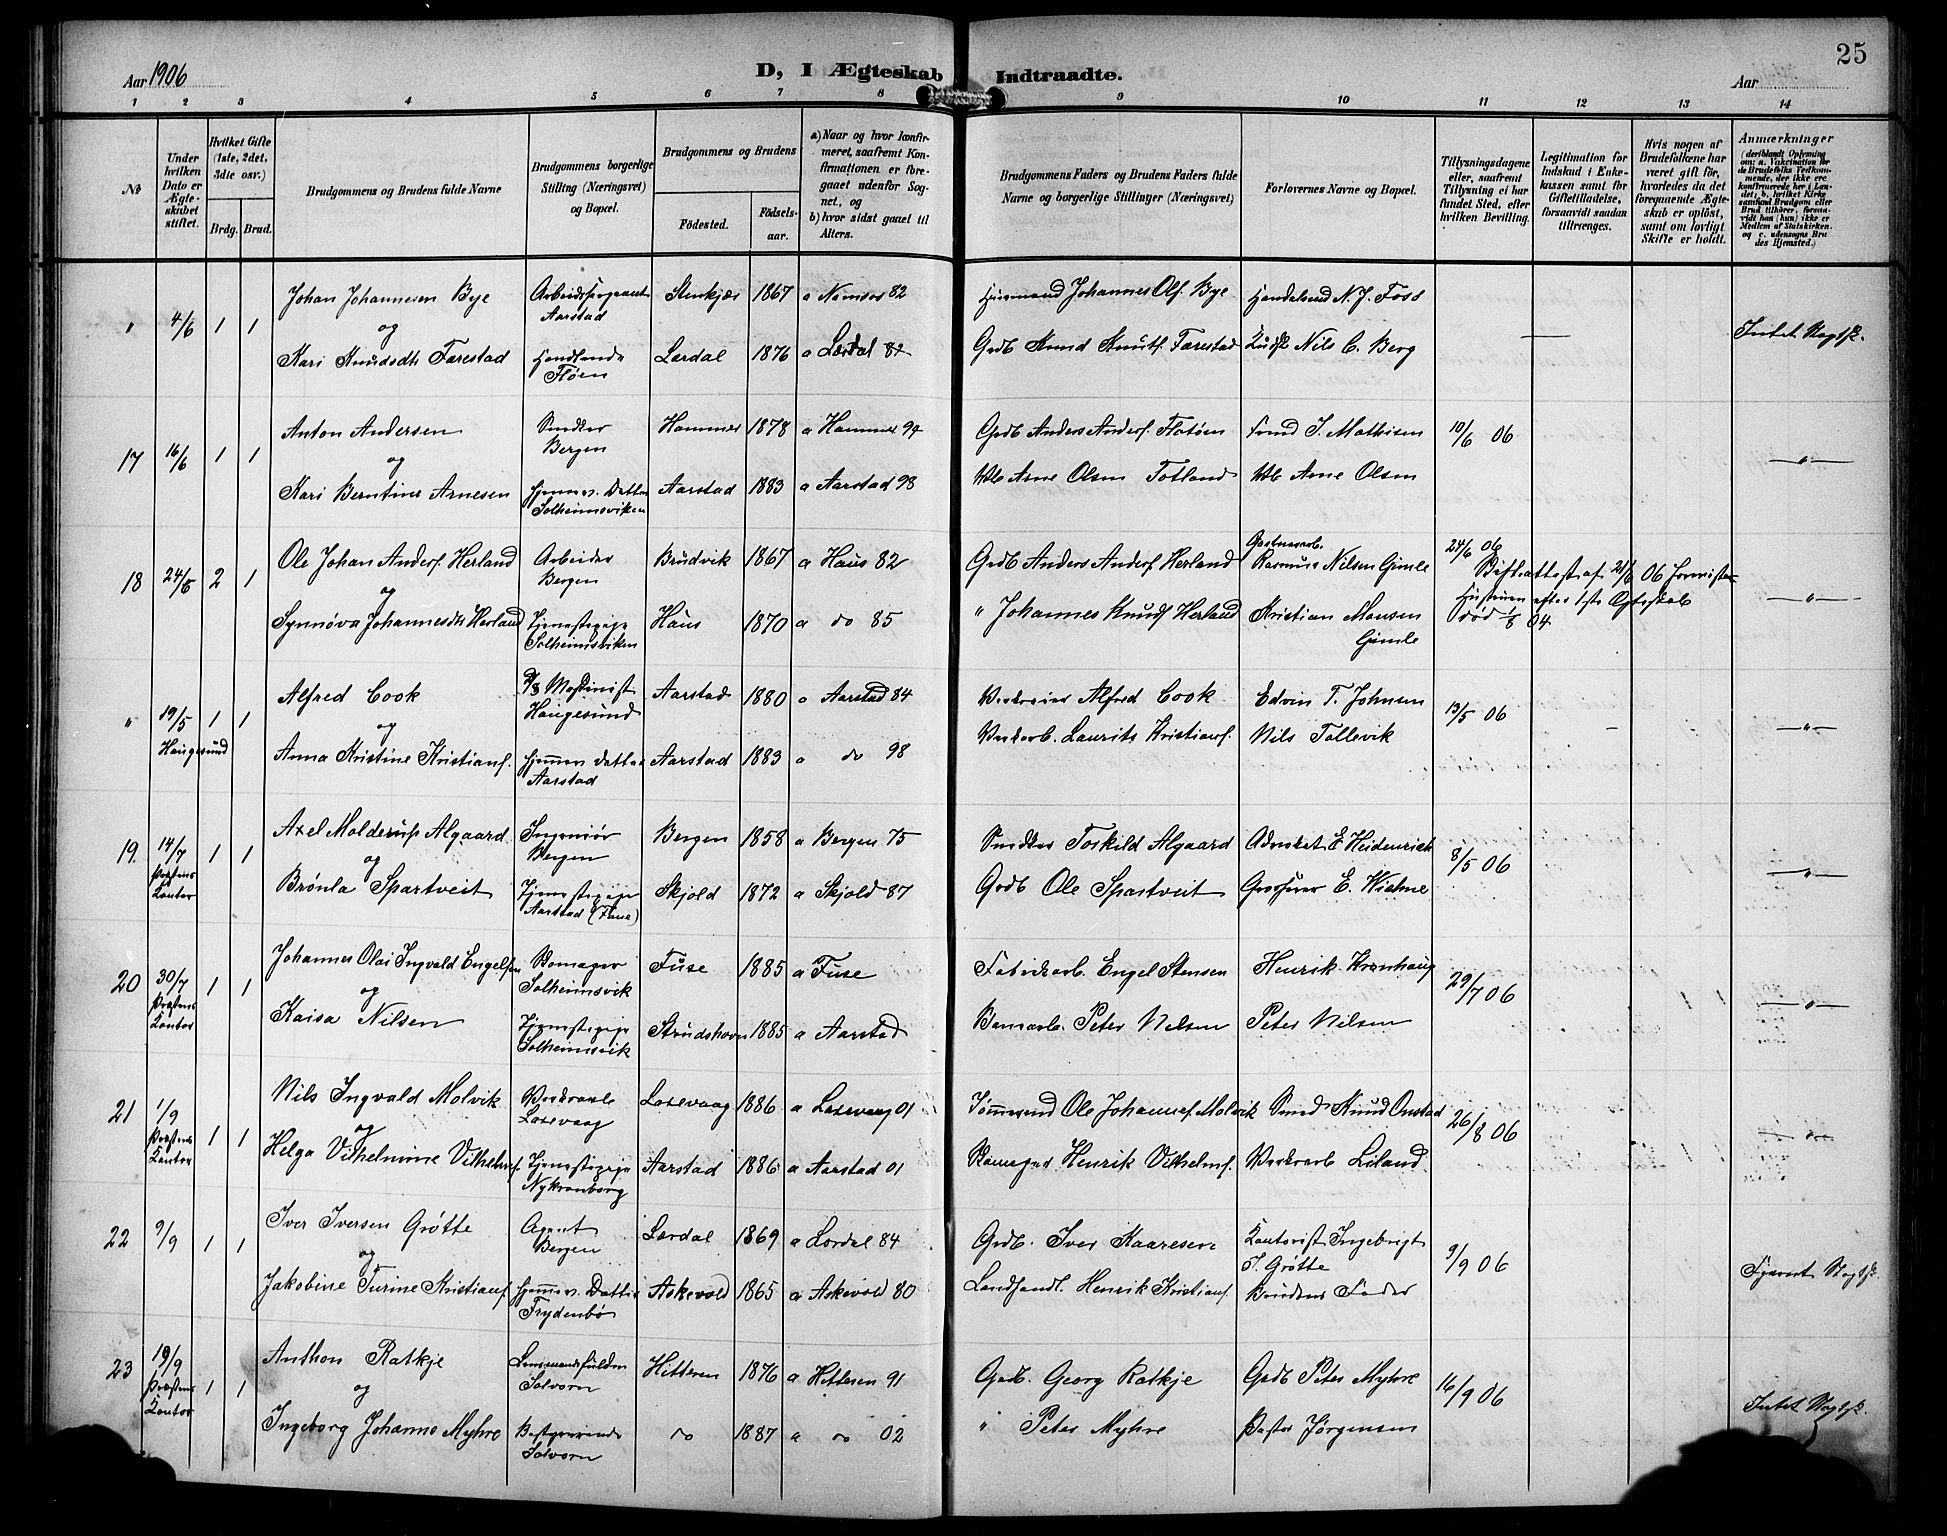 Aar 1906
D, I Ægteskab Indtraadte.
Aar
25
1 2 3 4 5 6 7 8 9 10 11 12 13 14
No
Under hvilken Dato er Ægteskabet stiftet.
Hvilket Gifte (1ste, 2det, 3die osv.)
Brdg. Brud.
Brudgommens og Brudens fulde Navne
Brudgommens borgerlige Stilling (Næringsvei) og Bopæl.
Brudgommens og Brudens
Fødested.
Fødselsaar.
a) Naar og hvor konfirmeret, saafremt Konfirmationen er foregaaet udenfor Sognet, og
b) hvor sidst gaaet til Alters.
Brudgommens Faders og Brudens Faders fulde Navne og borgerlige Stillinger (Næringsvei)
Forlovernes Navne og Bopæl.
Tillysningsdagene eller, saafremt Tillysning ei har fundet Sted, efter hvilken Bevilling.
Legitimation for Indskud i Enkekassen samt for Giftetilladelse, forsaavidt saadan tiltrænges.
Hvis nogen af Brudefolkene har været gift før, hvorledes da det foregaaende Ægteskab er opløst, samt om lovligt Skifte er holdt.
Anmærkninger
(deriblandt Oplysning om: a. Vakcination for de Brudefolks Vedkommende, der ikke ere konfirmerede her i Landet; b. hvilket Kirkesamfund Brudgom eller Brud tilhører, forsaavidt han (hun) ikke er Medlem af Statskirken, og c. udensogns Brudes Hjemsted.)
" 4/6 1 1 Johan Johannesen Bye Stenkjær 1867 a Namsos 82 Husmand Johannes Ols. Bye N. J. Foss —
Aarstad
og
Kari Knudsdtr Farestad Lærdal 1876 a Lærdal Grdb Knud Knuts. Farestad Nils C. Berg
Fløen
17 16/6 1 1 Anton Andersen Snedker Hammer 1878 a Hammer 94 Grdb Anders Anders. Flatøen I. Mathisen 10/6 06 —"—
Bergen
og
Kari Berntine Arnesen Hjemmev. Datter Aarstad 1883 a Aarstad 98 Arne Olsen Totland Arne Olsen
Solheimsviken
18 24/6 2 1 Ole Johan Anders. Herland Arbeider Brudvik 1867 a Haus 82 Grdb Anders Anders. Herland Rasmus Nilsen Gimle 24/6 06
Bergen
og Hustruen efter 1ste Ægteskab —"—
Synnøva Johannesdtr Herland Tjenestepige Haus 1870 a do 85 " Johannes Knuds Herland Kristian Monsen død 1/8 04.
Solheimsviken Gimle
" 19/5 1 1 Alfred Cook Maskinist Aarstad 1880 a Aarstad 84 Alfred Cook Edvin T. Johnsen 13/5 06 – —"—
Haugesund Haugesund
og
Anna Kristine Kristians. Hjemmev. Datter Aarstad 1883 a do 98 Laurits Kristians. Nils Tollevik
Aarstad
19. 14/7 1 1 Axel Molderup Algaard Ingeniør Bergen 1858 a Bergen 75 Snedker Toskild Algaard Advokat E Heidenreich 8/5 06 —"—
Præstens Kontor Bergen
og
Brønla Spartveit Tjenestepige Skjold 1872 a Skjold 87 Grdb Ole Spartveit
Aarstad
20 30/7 1 1 Johannes Olai Ingvald Engelsen Fuse 1885 a Fuse Fabrikarb. Engel Stensen Henrik Kronhaug 29/7 06 —"—
Præstens Kontor Solheimsvik
og
Kaisa Nilsen Tjenestepige 1885 a Aarstad Peter Nilsen Peter Nilsen
Solheimsvik
21 1/9 1 1 Nils Ingvald Molvik Laxevaag 1886 a Laxevaag 01 Tømmermand Ole Johannes. Molvik Smed Knud Onstad 26/8 06 —"—
Præstens Kontor Laxevaag
og
Helga Vilhelmine Vilhelms. Tjenestepige Aarstad 1886 a Aarstad 01 Henrik Vilhelms. Liland
Nykronborg
22 9/9 1 1 Iver Iversen Grøtte Agent Lærdal 1869 a Lærdal 84 Grdb. Iver Kaaresen Kontorist Ingebrigt 9/9 06
Bergen Grøtte
og
Jakobine Turine Kristians. Hjemmev. Datter Askevold 1865 a Askevold 80 Landhandl. Henrik Kristians. Brudens Fader
Frydenbø
23 19/9 1 1 Anthon Ratkje Hitteren 1876 a Hitteren 91 Grdb. Georg Ratkje Grdb Peter Myhre 16/9 06
Præstens Kontor Solvorn
og
Ingeborg Johanne Myhre Bestyrerinde do 1887 a do 02 " Peter Myhre Jørgensen
Solvorn